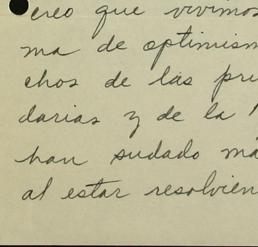 creo que vivimos
ma de optimism
chos de las pri
darias y de la
han sudado má
al estar resolvien